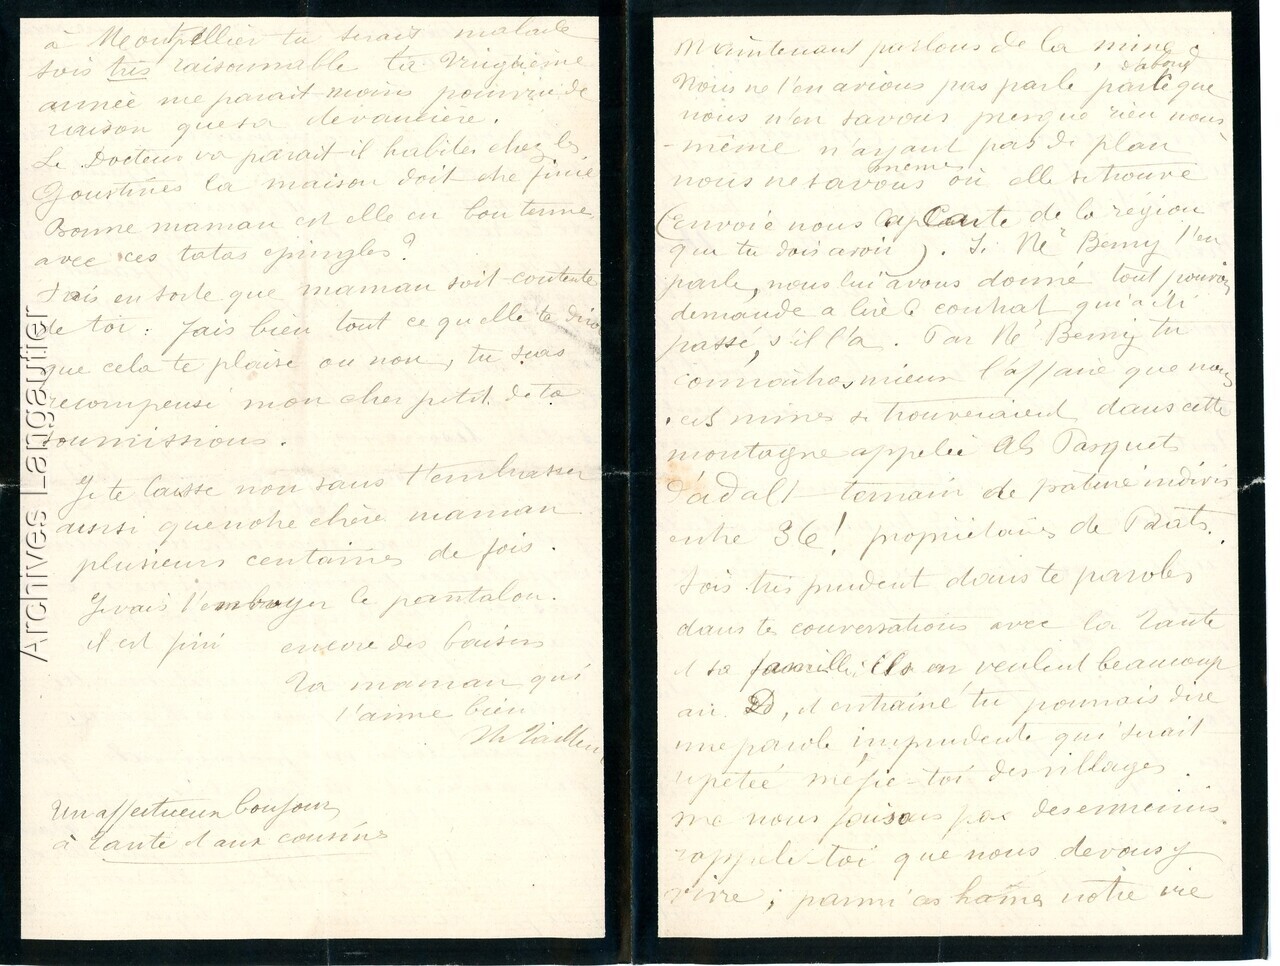 à Montpellier tu serais malade
sois très raisonnable ta vingtième
année me parait moins pourvue de
raison que sa devancière.
Le Docteur va parait-il habiter chez les
la maison doit être finie
Bonne maman est elle en bon terme
avec ces tatas epingles?
Fais en sorte que maman soit contente
de toi. Fais bien tout ce qu'elle te dira
que cela te plaise ou non, tu seras
recompensé mon cher petit de ta
soumissions.
Je te laisse non sans t'embrasser
aussi que notre chère maman
plusieurs centaines de fois.
Je vais t'envoyer le pantalon.
il est fini encore des baisers
Ta maman qui
t'aime bien
Un affectueux bonjour
à Tante et aux cousins
Archives Langautier
Maintenant parlons de la mine.
Nous ne t'en avions pas parlé d'abord parce que
nous n'en savons presque rien nous
-même n'ayant pas de plan
nous ne savons même où elle se trouve
(Envoie nous la Carte de la région
que tu dois avoir). Si Me Bemy t'en
parle, nous lui avons donné tout pouvoir
demande a lire le contrat qui a été
passé, s'il l'a. Par Me Bemy tu
connaîtras mieux l'affaire que nous
ces mines se trouveraient dans cette
montagne appelée Als Pasquets
d'adalt terrain de pature indivis
entre 36! propriétaires de Prats.
Sois très prudent dans te paroles
dans tes conversations avec la Tante
et sa famille ils en veulent beaucoup
au D, et entrainé tu pourrais dire
une parole imprudente qui serait
repetée méfie-toi des villages.
ne nous faisons pas des ennemis.
rappele-toi que nous devons y
vivre; parmi ces haines notre vie